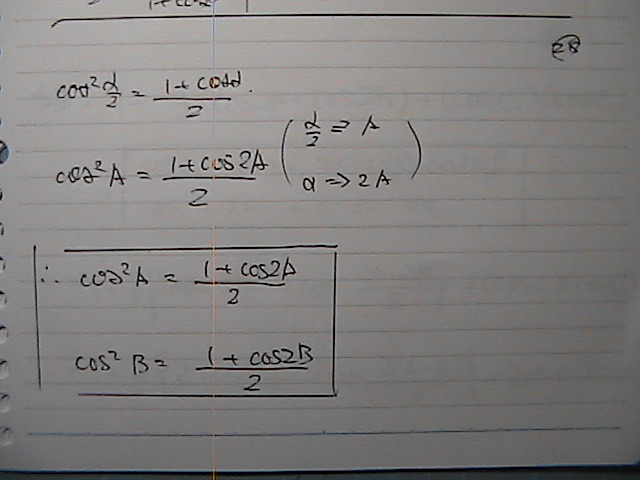 cos²α/2 = (1 + cosα)/2.
cos²A = (1 + cos2A)/2 (α/2 ⇒ A
α ⇒ 2A)
∴ cos²A = (1 + cos2A)/2
cos² B = (1 + cos2B)/2